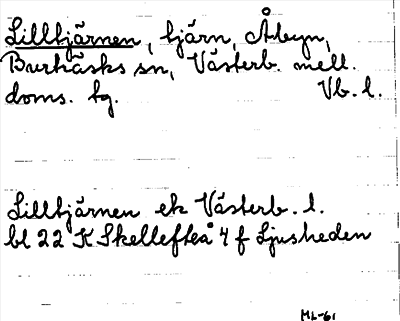 Lilltjärnen, tjärn, Åbyn,
Burträsks sn, Västerb. mell.
doms. tg. Vb. l.
Lilltjärnen ek Västerb. l.
bl 22 K Skellefteå 4 f Ljusheden
ML-61